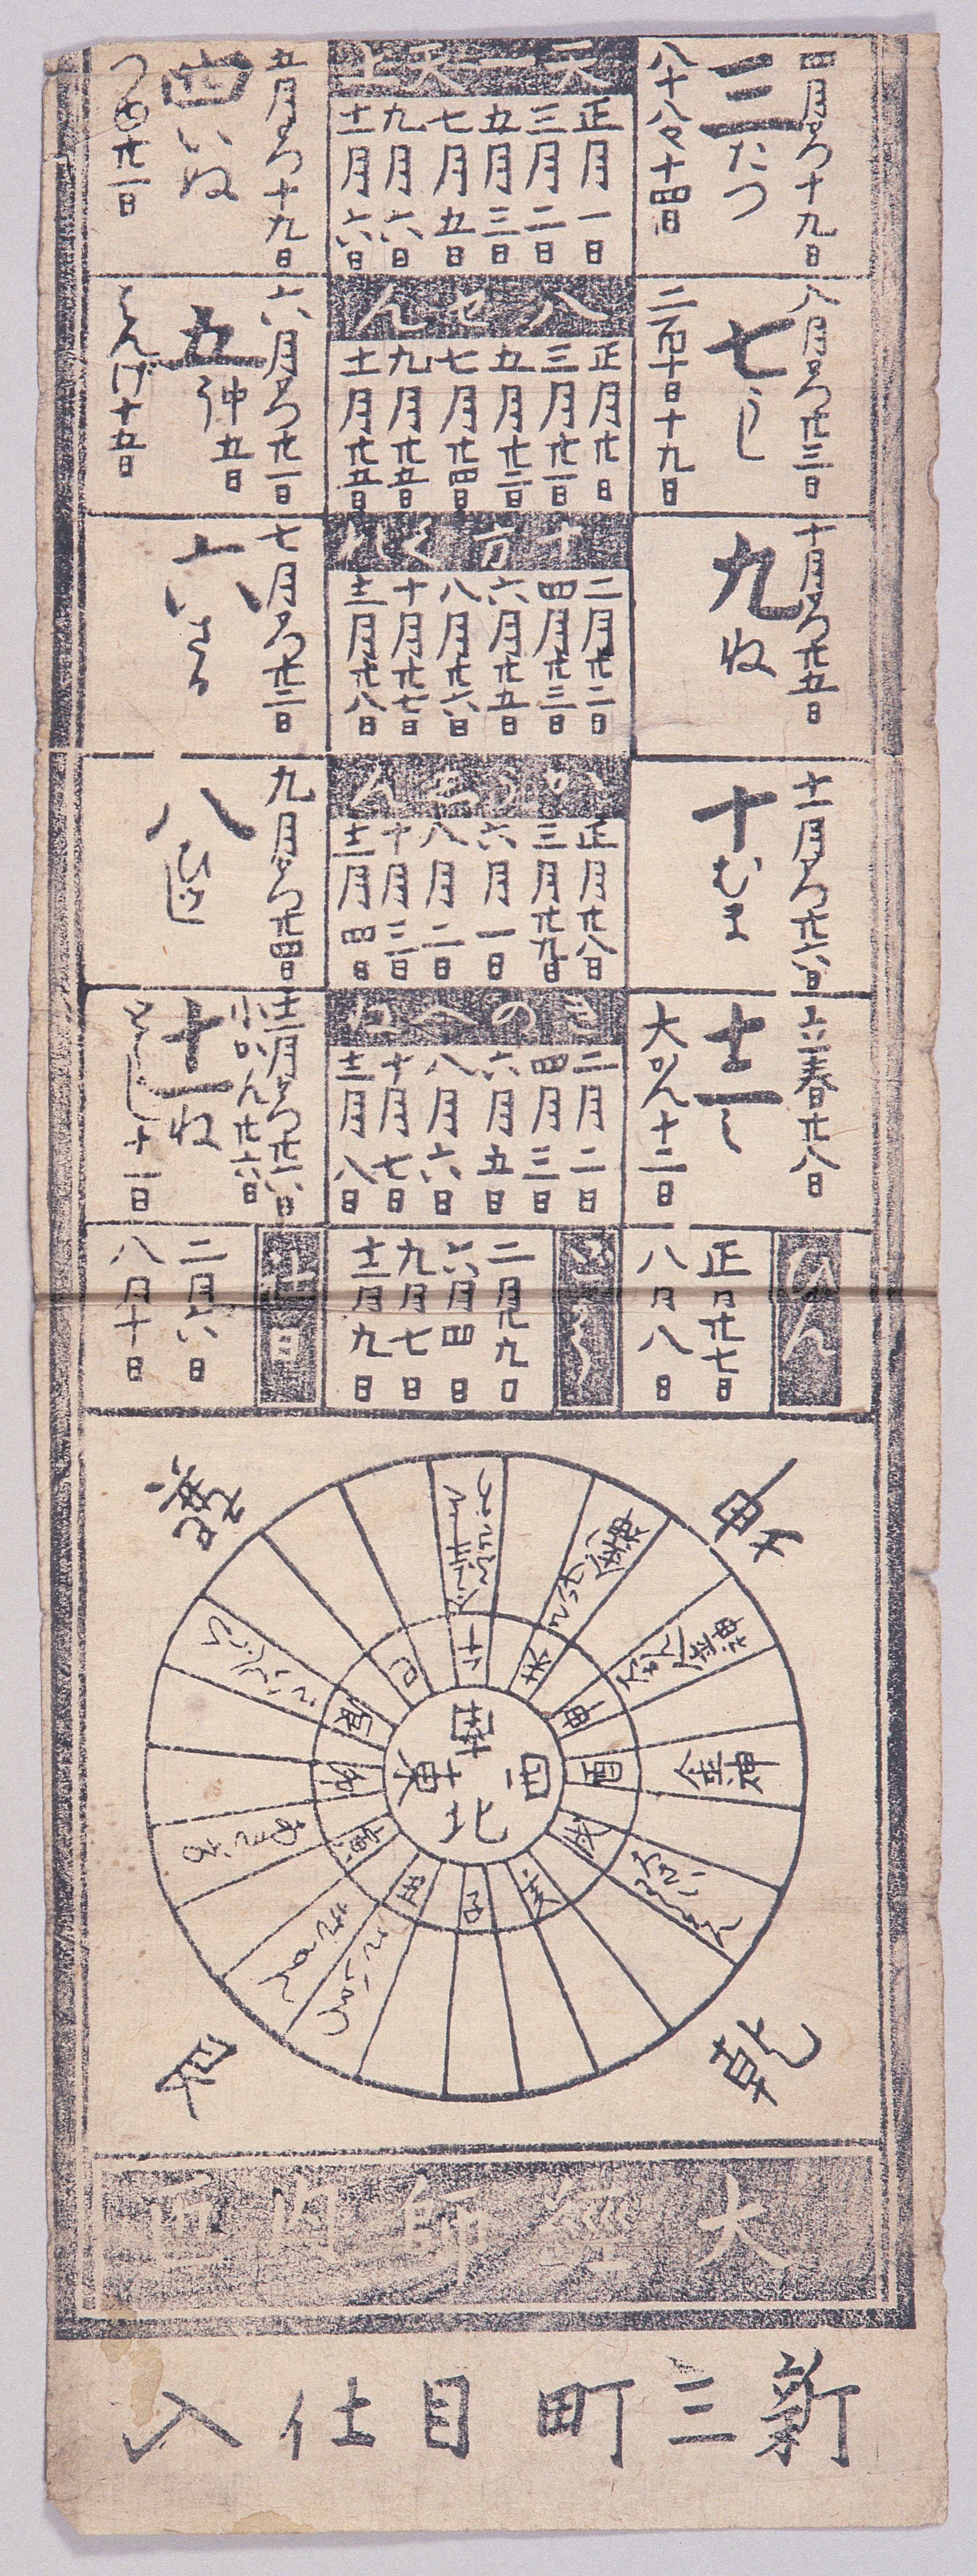 四月より十九日
三たつ
八十八夜十四日
天一天上
正月一日
三月二日
五月三日
七月五日
九月六日
十一月六日
五月より十九日
四いぬ
つゆ廿一日
八月より廿三日
七うし
二百十日十九日
八せん
正月廿日
三月廿一日
五月廿二日
七月廿四日
九月廿五日
十一月廿五日
六月より廿一日
五
中五日
はんげ十五日
十月より廿五日
九
十方くれ
二月廿二日
四月廿三日
六月廿五日
八月廿六日
十月廿七日
十二月廿八日
七月より廿二日
六さる
十一月より廿六日
十むま
正月廿八日
三月廿九日
六月一日
八月二日
十月三日
十二月四日
九月より廿四日
八ひつじ
立春廿八日
十二
大かん十二日
きのへね
二月二日
四月三日
六月五日
八月六日
十月七日
十二月八日
十二月より廿六日
小かん廿六日
十一
十一日
ひがん
正月廿七日
八月八日
二月廿九日
六月四日
九月七日
十二月九日
二月六日
八月十日
巽
坤
艮
乾
南
東
西
北
巳
午
未
申
酉
戌
亥
子
丑
寅
卯
辰
金神
大經師内匠
新三町目仕入